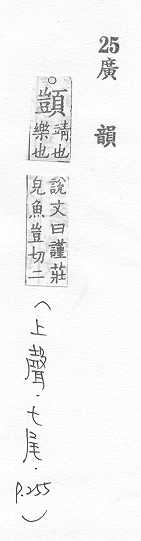 25廣韻
○顗 靖也
樂也 說文曰謹莊
皃魚豈切二
（上聲．七尾．P.255）